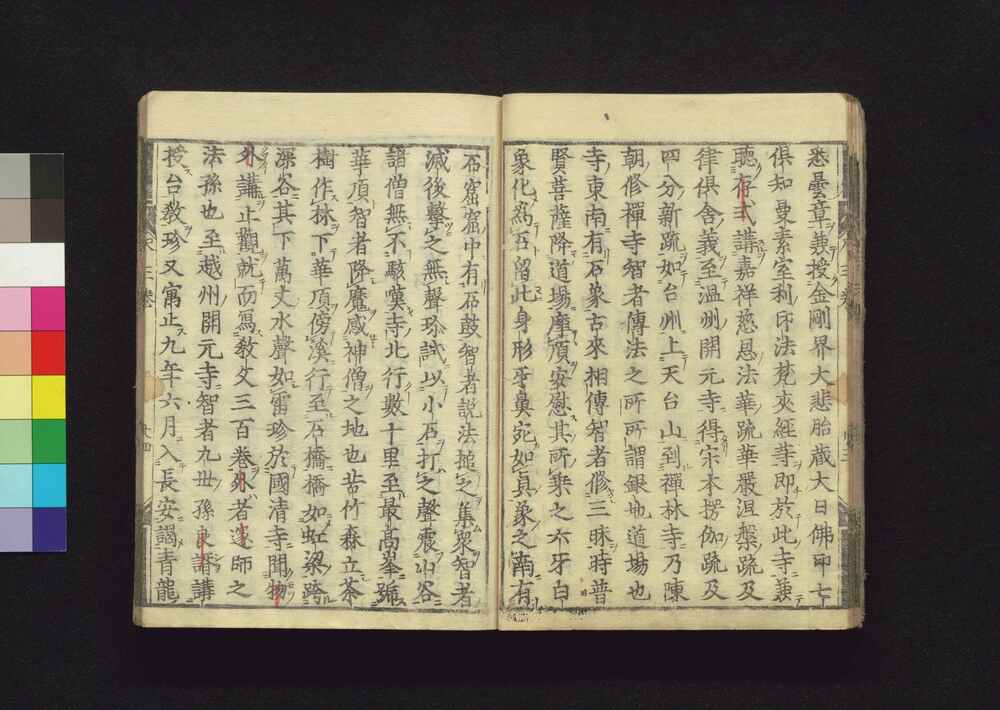 悉曇章兼授金剛界大悲胎蔵大日佛印七
倶知曼素室利印法梵夾經等即於此寺兼
聽存式講嘉祥慈恩法華疏華嚴涅槃疏及
律倶舍義至温州開元寺得宋本楞伽疏及
四分新疏如台州上天台山到禪林寺乃陳
朝修禪寺智者傳法之所所謂銀地道場也
寺東南有石象古來相傳智者修三昧時普
賢菩薩降道場摩頂安慰其所乘之六牙白
象化爲石留此身形牙鼻宛如真象之南有
石窟窟中有石鼓智者説法搥之集衆智者
滅後擊之無聲珍試以小石打之聲震山谷
諸僧無不駭嘆寺北行數十里至最高峯號
華頂智者降魔感神僧之地也苦竹森立茶
樹作林下華頂傍溪行至石橋橋如虹梁跨
深谷其下萬丈水聲如雷珍於國清寺聞物
外講止觀就而寫教文三百卷外者邃師之
法孫也至越州開元寺智者九世孫良諝講
授台教珍又寓止九年六月入長安謁青龍